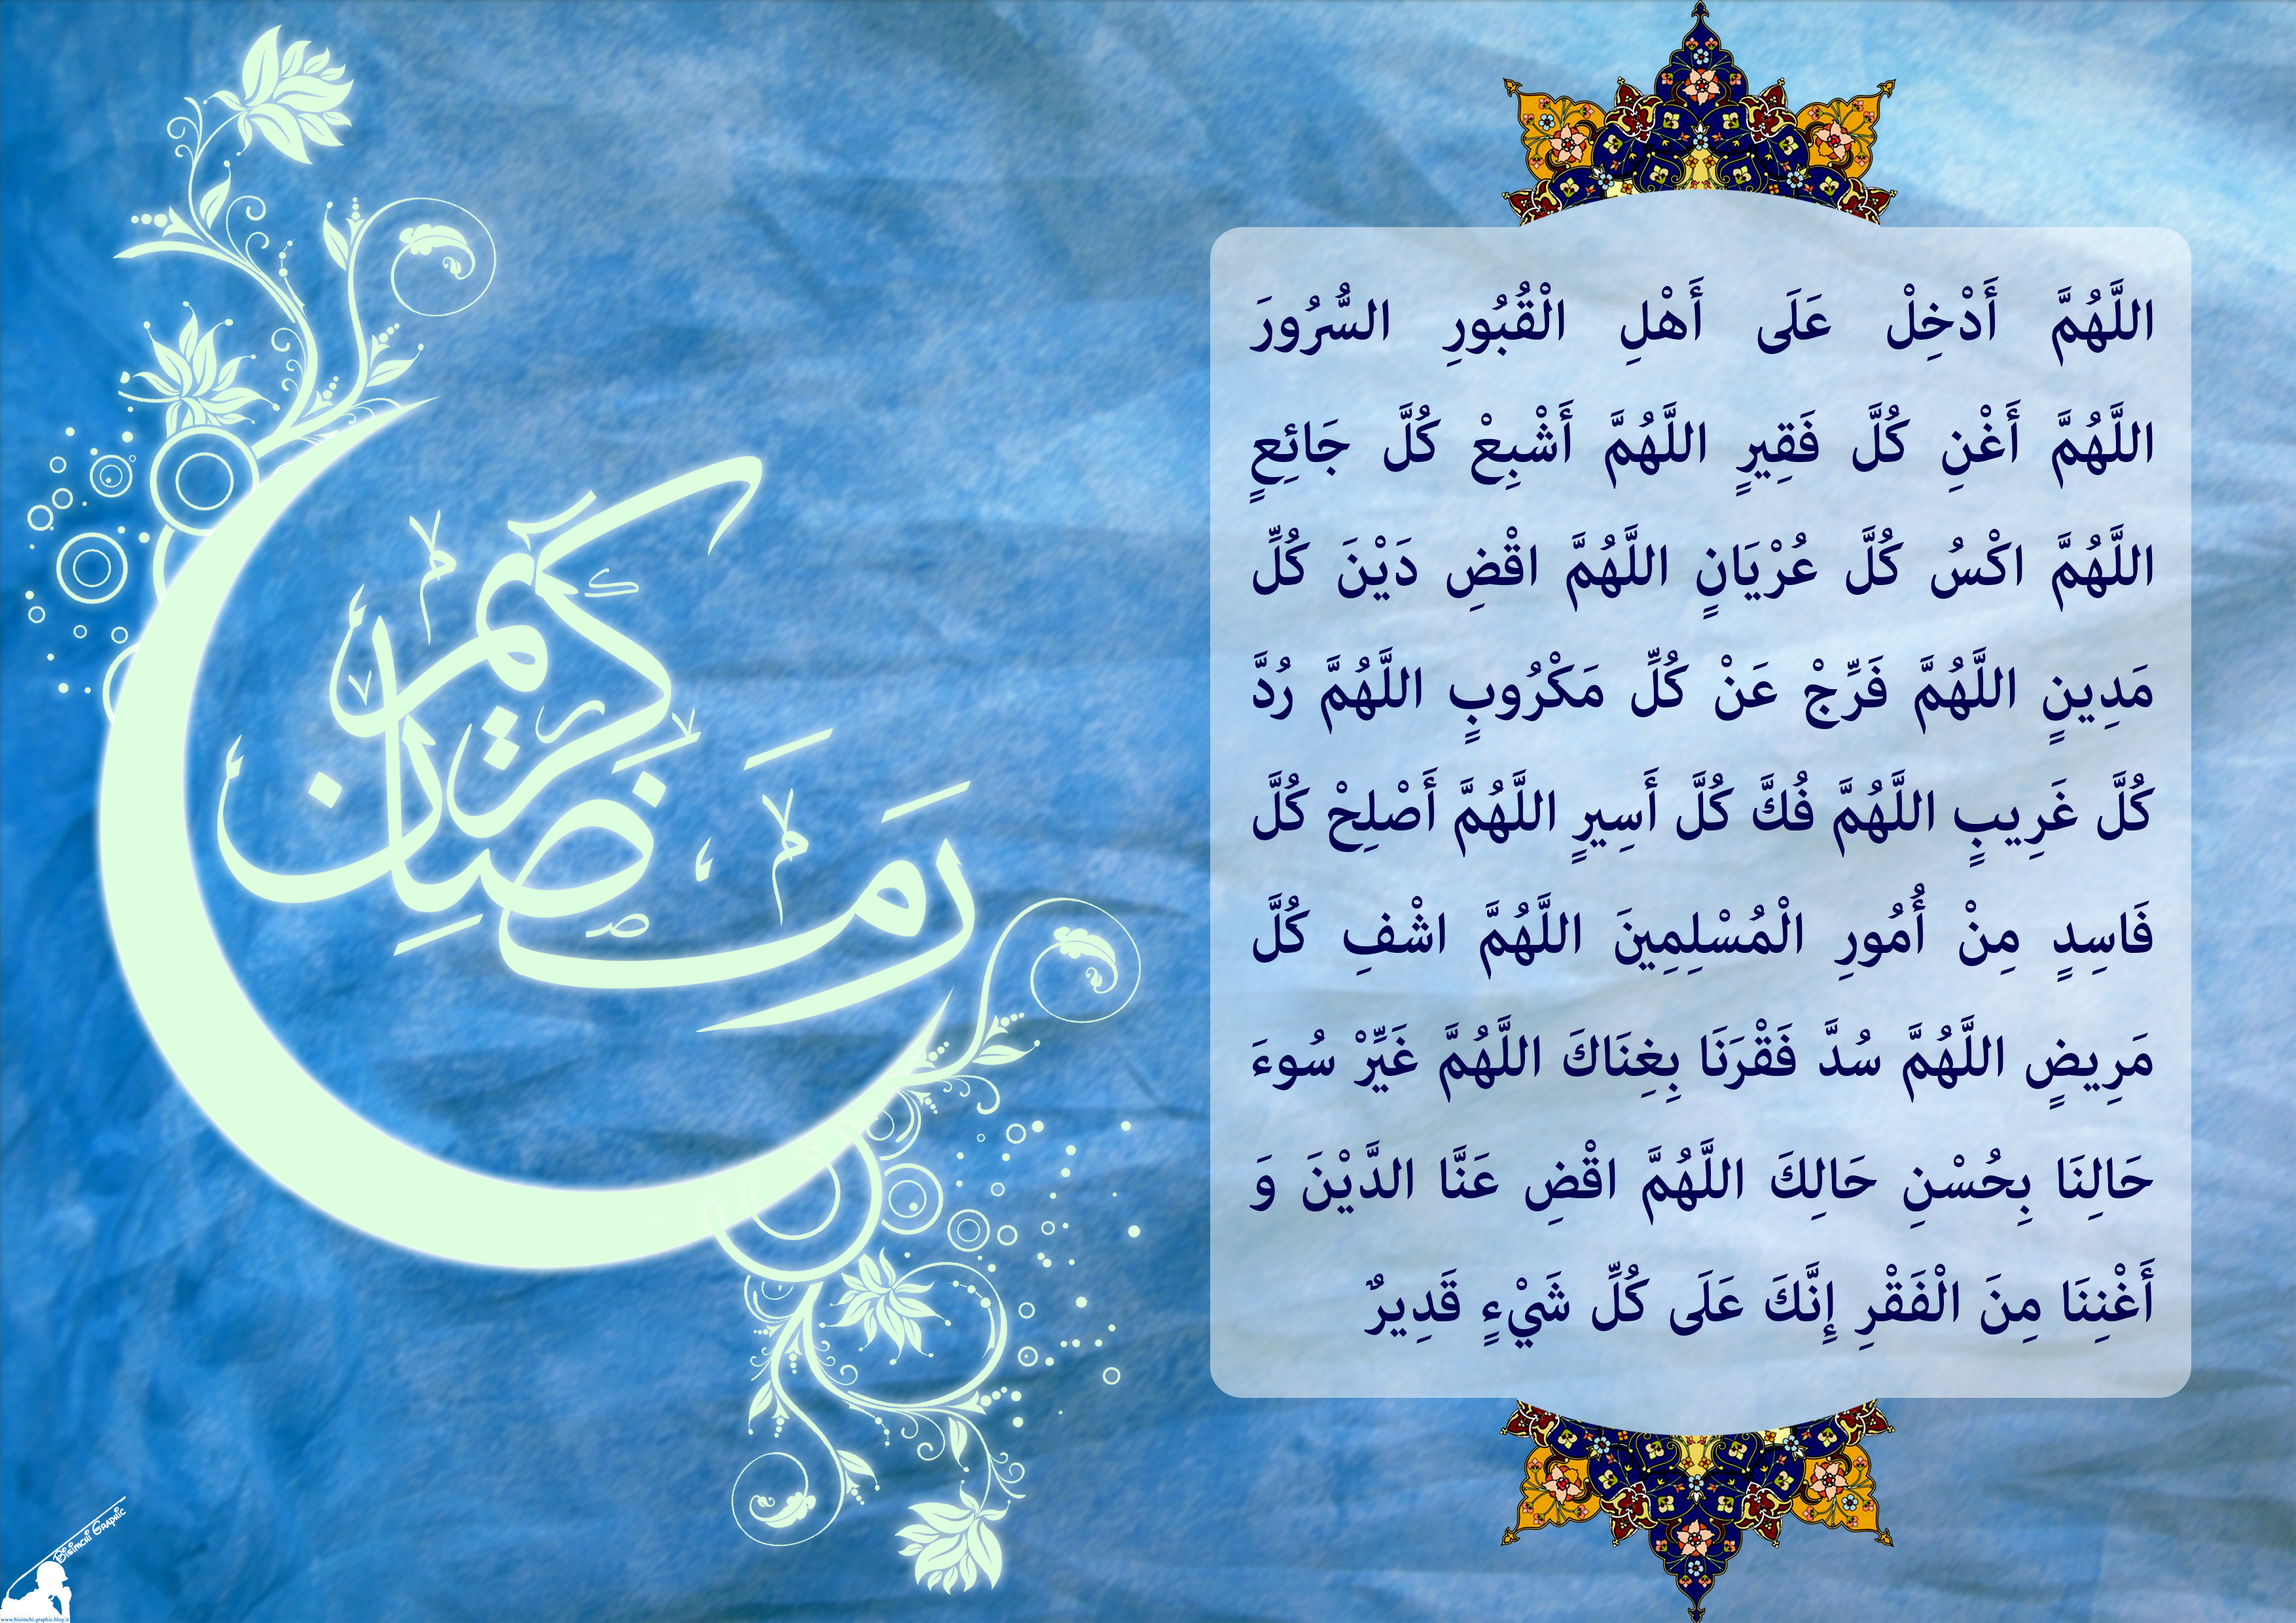 اللَّهُمَّ أَدْخِلْ عَلَى أَهْلِ الْقُبُورِ السُّرُورَ
اللَّهُمَّ أَغْنِ كُلَّ فَقِيرٍ اللَّهُمَّ أَشْبِعْ كُلَّ جَائِعٍ
اللَّهُمَّ اكْسُ كُلَّ عُرْيَانٍ اللَّهُمَّ اقْضِ دَيْنَ كُلِّ
مَدِينٍ اللَّهُمَّ فَرِّجْ عَنْ كُلِّ مَكْرُوبٍ اللَّهُمَّ رُدَّ
كُلَّ غَرِيبٍ اللَّهُمَّ فُكَّ كُلَّ أَسِيرٍ اللَّهُمَّ أَصْلِحْ كُلَّ
فَاسِدٍ مِنْ أُمُورِ الْمُسْلِمِينَ اللَّهُمَّ اشْفِ كُلَّ
مَرِيضٍ اللَّهُمَّ سُدَّ فَقْرَنَا بِغِنَاكَ اللَّهُمَّ غَيِّرْ سُوءَ
حَالِنَا بِحُسْنِ حَالِكَ اللَّهُمَّ اقْضِ عَنَّا الدَّيْنَ وَ
أَغْنِنَا مِنَ الْفَقْرِ إِنَّكَ عَلَى كُلِّ شَيْءٍ قَدِيرٌ
رَمَضَان كريم
Bisimchi Graphic
www.bisimchi-graphic.blog.ir